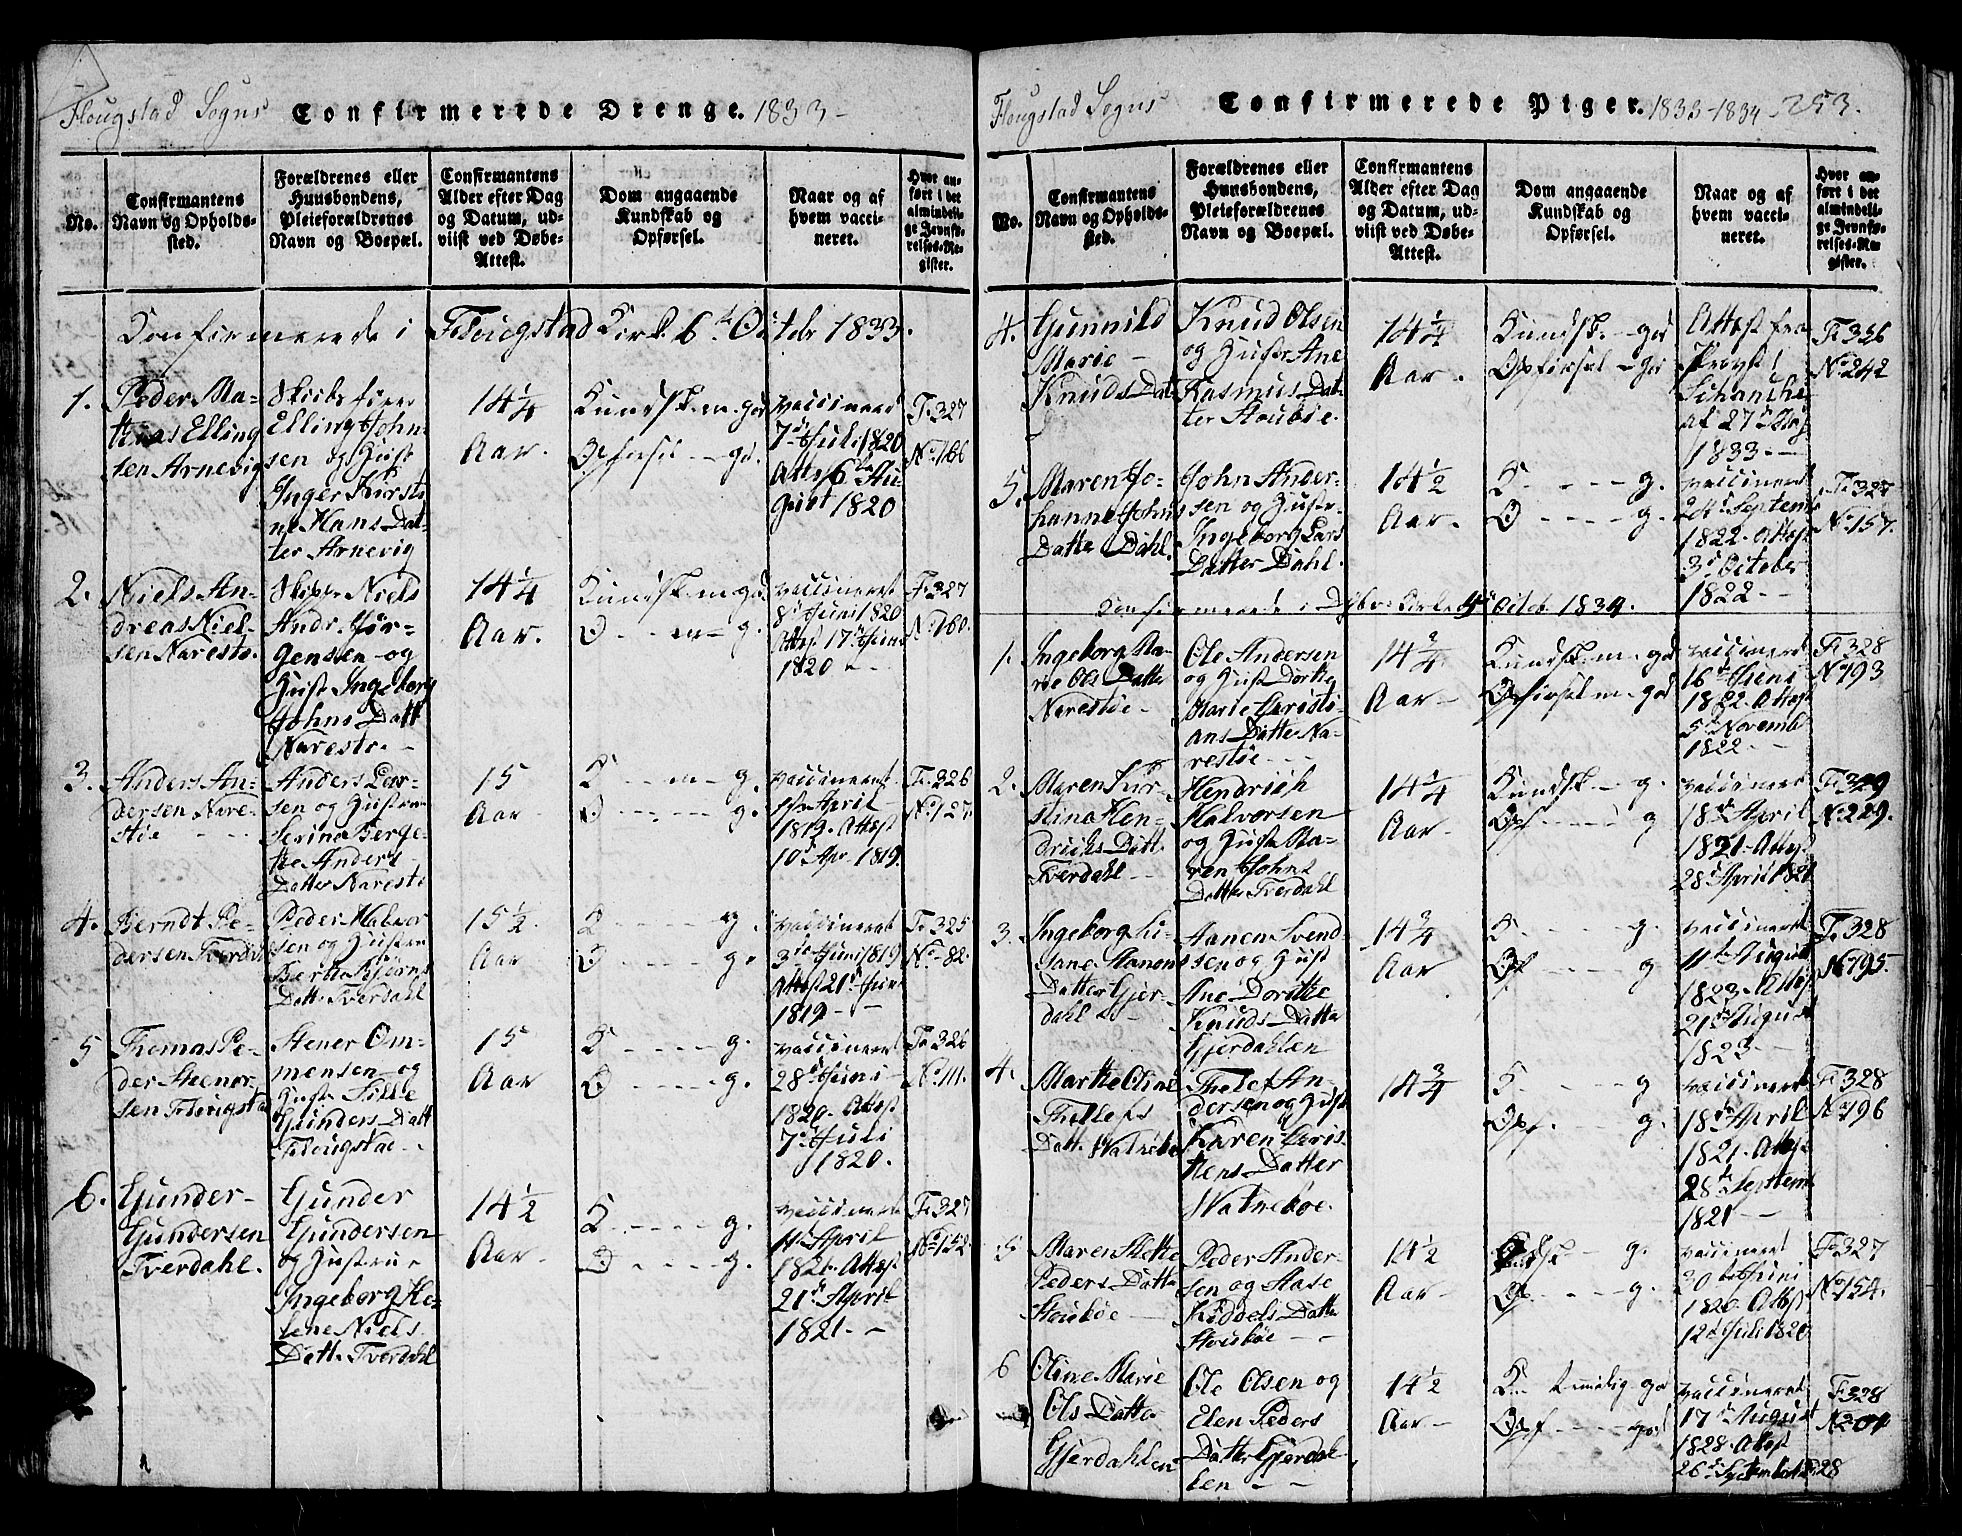 Flougstad Sogns Confirmerede Drenge. 1833 -
No.
Confirmantens
Navn og Opholds-
sted.
Forældrenes eller
Huusbondens,
Pleieforældrenes
Navn og Boepæl.
Confirmantens
Alder efter Dag
og Datum, ud-
viist ved Døbe-
Attest.
Dom angaaende
Kundskab og
Opførsel.
Naar og af
hvem vacci-
neret.
Hvor an-
ført i det
almindeli-
ge Jevnfø-
relses-Re-
gister.
Confirmerede i Flougstad Kirke 6te October 1833.
1.
Peder Ma-
thias Elling
sen Arnevig
Skibsfører
Elling John-
sen og Hust
Inger Kirsti
ne Hans Dat-
ter Arnevig
14 1/4
Aar.
Kundsk. m. god
Opførsel - - gd.
vaccineret
7de Juli 1820
Attest 6te Au
gust 1820
Fo 327
No 166
2.
Niels An-
dreas Niel-
sen Narestø.
Skipper Niels
Andr. Jør-
gensen og
Hust. Ingeborg
Johns Datt
Narestø. -
14 1/4
Aar.
Kundsk. m. gd.
O - - m - g.
vaccineret
8de Juni 1820
Attest 17de Juni
1820 - -
Fo 327
No 160.
3.
Anders An-
dersen Nare-
støe - - -
Anders Lar-
sen og Hustrue
Serina Berge-
the Anders
Datter Narestø
15
Aar
K - - m - g.
O - - - - g.
vaccineret
1ste April -
1819. Attest
10de Apr. 1819.
Fo 326
No 127.
4.
Berndt Pe-
dersen Tverdal
Peder Halvor
sen og Hustrue
Berthe Bjørns
Datt. Tverdahl
15 1/2.
Aar
K - - - - g.
O - - - - g.
vaccineret
3die Juni 1819
Attest 21de Juni
1819 - -
Fo 325
No - 82.
5
Thomas Pe-
der Stener-
sen Flougstad
Stener Om-
mensen og
Hust. Sille
Gunders Datt
Flougstad - -
15
Aar
K - - - - g.
O - - - - g.
vaccineret
28de Juni -
1820. Attest
7de Juli
1820.
Fo 326
No 111.
6.
Gunder -
Gundersen
Tverdahl.
Gunder
Gundersen
og Hustrue
Ingeborg He-
lene Niels
Datt. Tverdahl
14 1/2
Aar.
K. - - - - g.
O - - - - g.
vaccineret
11te April
1821. Attest
21de April
1821. - -
Fo 327
No 152.
Flougstad Sogns Confirmerede Piger. 1833-1834 - 253.
No.
Confirmantens
Navn og Opholds-
sted.
Forældrenes eller
Huusbondens,
Pleieforældrenes
Navn og Boepæl.
Confirmantens
Alder efter Dag
og Datum, ud-
viist ved Døbe-
Attest.
Dom angaaende
Kundskab og
Opførsel.
Naar og af
hvem vacci-
neret.
Hvor an-
ført i det
almindeli-
ge Jevnfø-
relses-Re-
gister.
4.
Gunnild
Marie -
Knuds Dat
Knud Olsen
og Hustr Ane
Rasmus Dat-
ter Stoubøe.
14 1/4
Aar.
Kundsk. - god
Opførsel - god
Attest fra
Provst
Schanche
af 27de
1833. - -
Fo 326
No 242
5.
Maren Jo-
hanne Johns
Datter Dahl.
John Ander-
sen og Hustr-
Ingeborg Lars
Datter Dahl.
14 1/2
Aar.
K - - - - g.
O - - - - g.
vaccineret
24de Septem
1822. Attest
3die October
1822 - -
Fo 327
No 157.
Confirmerede i Dybvs Kirke 5te Octob 1834.
1.
Ingeborg Ma-
rie Ols Datter
Narestøe -
Ole Andersen
og Hust Dorthe
Marie Christi-
ans Datter Na-
restøe - - -
14 3/4
Aar -
Kundsk. m. god
Opførsel m. god
vaccineret
16de Juni
1822. Attest
5te Novemb
1822 - -
Fo 328
No 193
2.
Maren Kir-
stina Hen-
driks Datt.
Tverdahl - -
Hendrich
Halvorsen
og Hust Ma-
ren Johns
Datter Tverdahl
14 1/4
Aar -
Kundsk - - g.
Opf - - - - g
vaccineret
18de April
1821. Attest
28de April 1821
Fo 329
No 229.
3.
Ingeborg Li-
sane Aanons
Datter Gjer-
dahl -
Aanen Svend-
sen og Hust
Ane Dorthe
Knuds Datter
Gjerdahlen
14 3/4
Aar
K - - - - g.
Opf - - - g
vaccineret
11te August
1823. Attest
21de August
1823 - -
Fo 328
No 195.
4.
Marthe Oline
Thellefs
Datt. Watnebøe
Thelef An
dersen og Hust
Karen Chris-
tens Datter
Watnebøe.
14 3/4
K - - - - g
Opf. - - - g.
vaccineret
18de April
1821. Attest
28de Septem
1821 - -
Fo 328
No 196
5
Maren Mette
Peders Datter
Stoubøe -
Peder Ander-
sen og Aase
Kiddels Datter
Stoubøe - -
14 1/2
Aar -
Kundsk - g.
Opf. - - - g.
vaccineret
30te Juni
1820. Attest
12te Juli 1820
Fo 327
No 154.
6
Oline Marie
Ols Datter
Gjerdahlen
Ole Olsen og
Elen Peders
Datter Gjerdah-
len - -
14 1/2
Aar -
K - temmelig god
Opf - - - god
vaccineret
17de August
1828. Attest
26de Septemb 1828
Fo 328
No 201